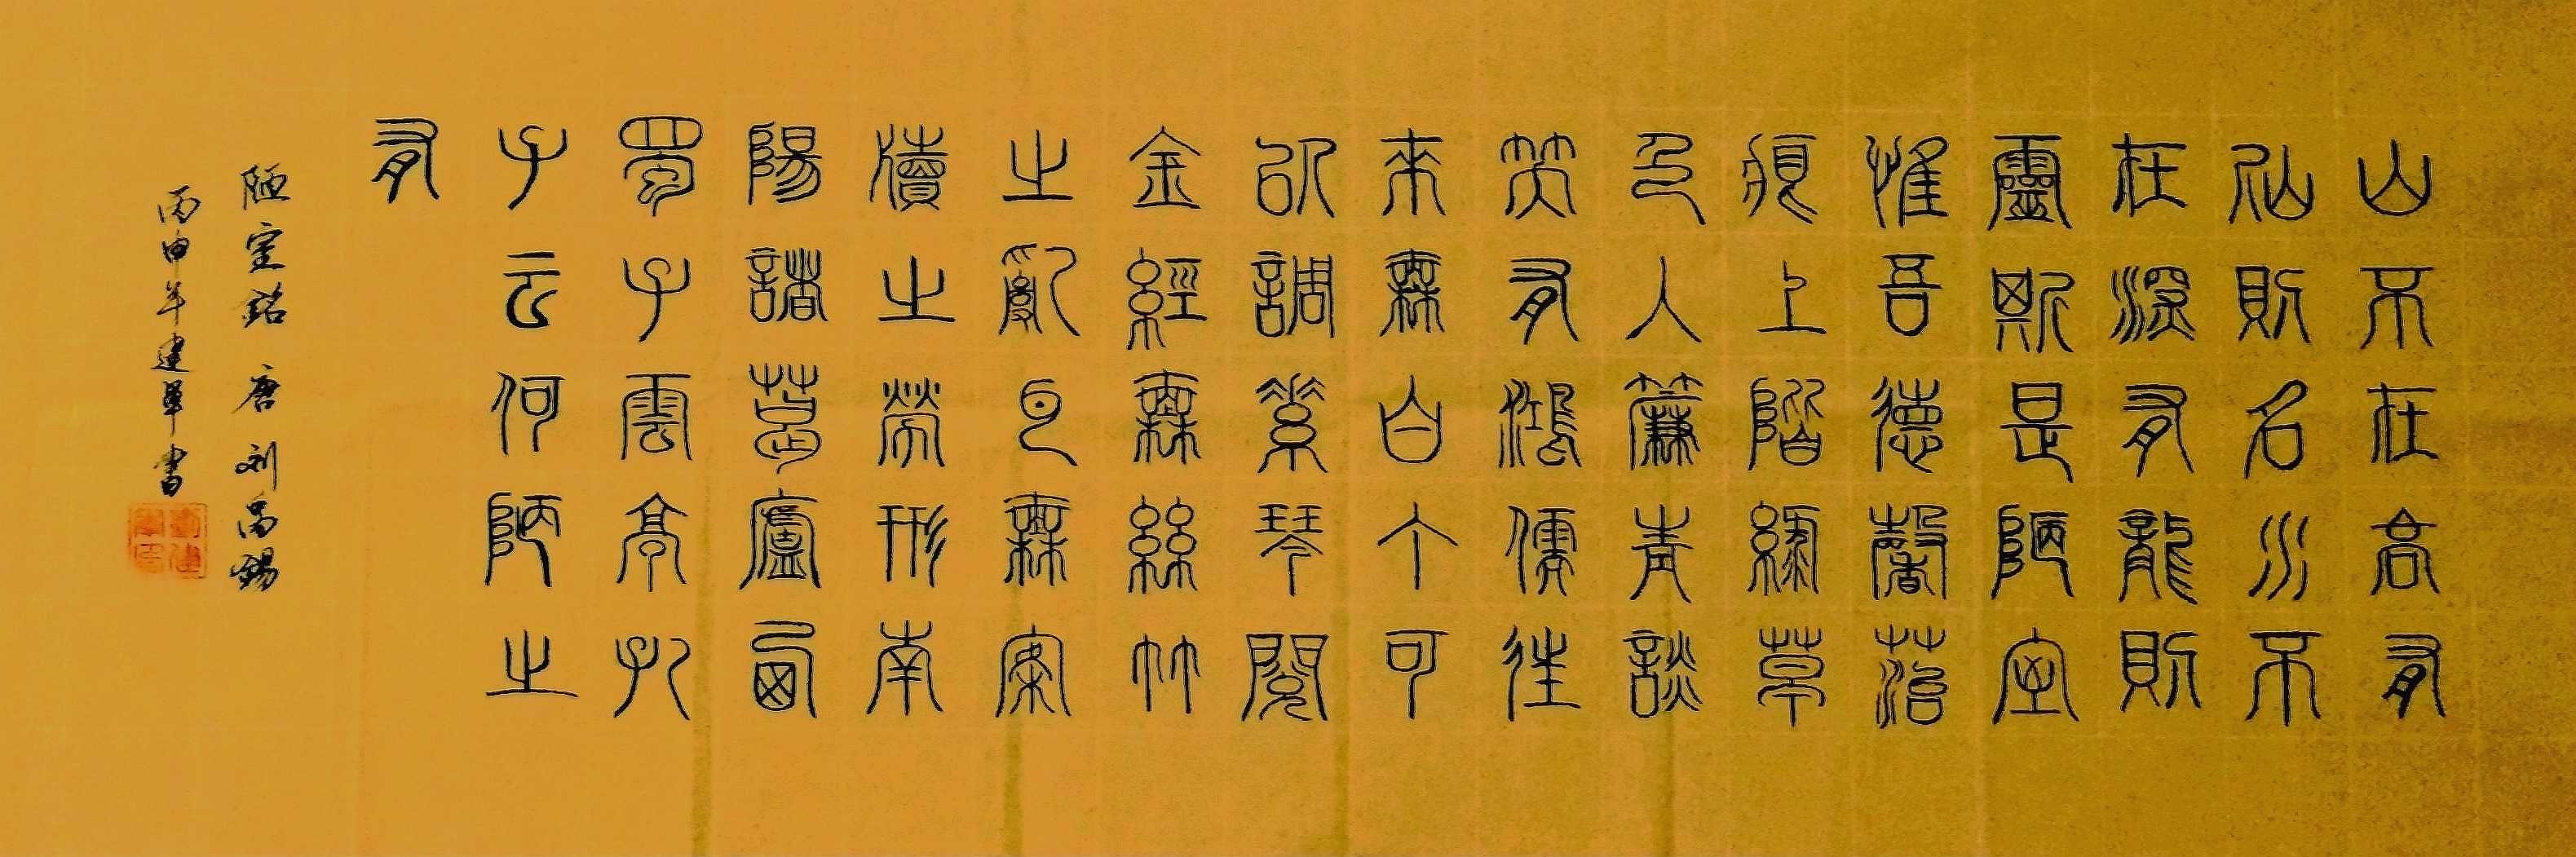 山不在高有
仙則名水不
在深有龍則
靈斯是陋室
惟吾德馨菭
痕上階綠草
色入簾青談
笑有鴻儒往
來無白丁可
以調素琴閱
金經無絲竹
之亂耳無案
牘之勞形南
陽諸葛廬西
蜀子雲亭孔
子云何陋之
有
陋室銘 唐 刘禹錫
丙申年建軍書